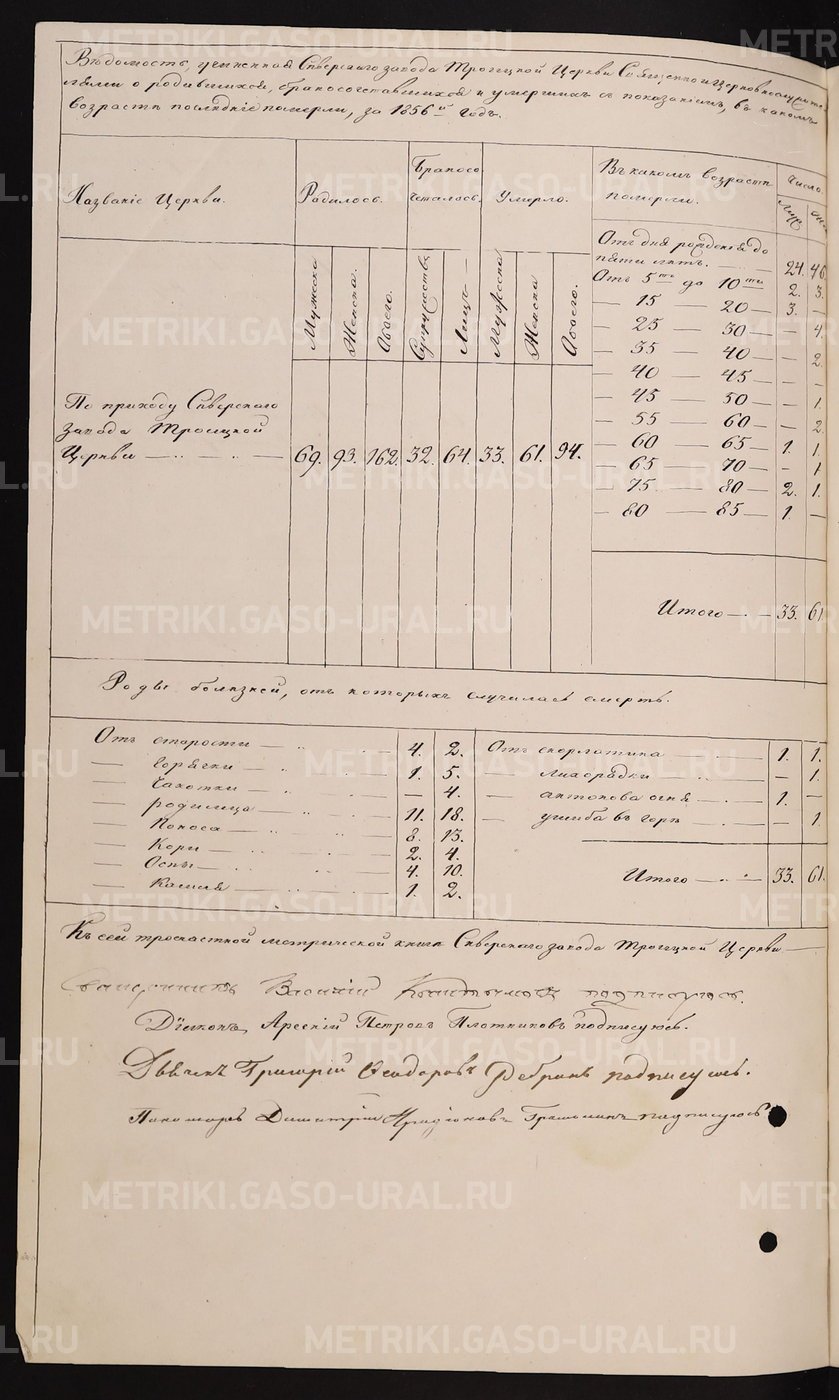 Вѣдомость, учиненная Сѣверскаго завода Троицкой Церкви Священно и церковнослужите-
лями о родившихся, бракосочетавшихся и умершихъ съ показаніемъ, въ какомъ
возрастѣ послѣдніе померли, за 1856й годъ.
Названіе Церкви.
Родилось.
Бракосо
четалось.
Умерло.
Въ какомъ возрастѣ
померли.
Число.
Муж
Мужеска
Женска.
Обоего.
Супружествъ
Лицъ —
Мужеска
Женска
Обоего.
Отъ дня рожденія до
пяти лѣтъ. — 24. 46.
Отъ 5ти до 10ти 2. 3.
— 15 — 20 — 3. —
— 25 — 30 — — 4.
— 35 — 40 — — 2.
— 40 — 45 — — —
— 45 — 50 — — 1.
— 55 — 60 — — 2
— 60 — 65 — 1. 1.
— 65 — 70 — — 1
— 75 — 80 — 2. 1.
— 80 — 85 — 1. —
Итого — 33. 61
По приходу Сѣверскаго
завода Троицкой
Церкви — 69. 93. 162. 32. 64. 33. 61. 94.
Роды болѣзней, отъ которыхъ случилась смерть.
Отъ старости — 4. 2.
— горячки — 1. 5.
— Чахотки — — 4.
— родимца — 11. 18.
— Поноса — 8. 13.
— Кори — 2. 4.
— Оспы — 4. 10.
— Кашля — 1. 2.
Отъ скорлатина 1. 1.
— лихорадки — — 1.
— антонова огня — 1. —
— ушиба въ горѣ — 1
Итого — 33. 61.
Къ сей троечастной метрической книгѣ Сѣверскаго завода Троицкой Церкви —
Священникъ Василій подписуюсь.
Діаконъ, Арсеній Петровъ Плотниковъ подписуюсь.
Дьячекъ Григорій Ѳеодоровъ подписуюсь.
Пономарь Димитрій подписуюсь
METRIKI.GASO-URAL.RU